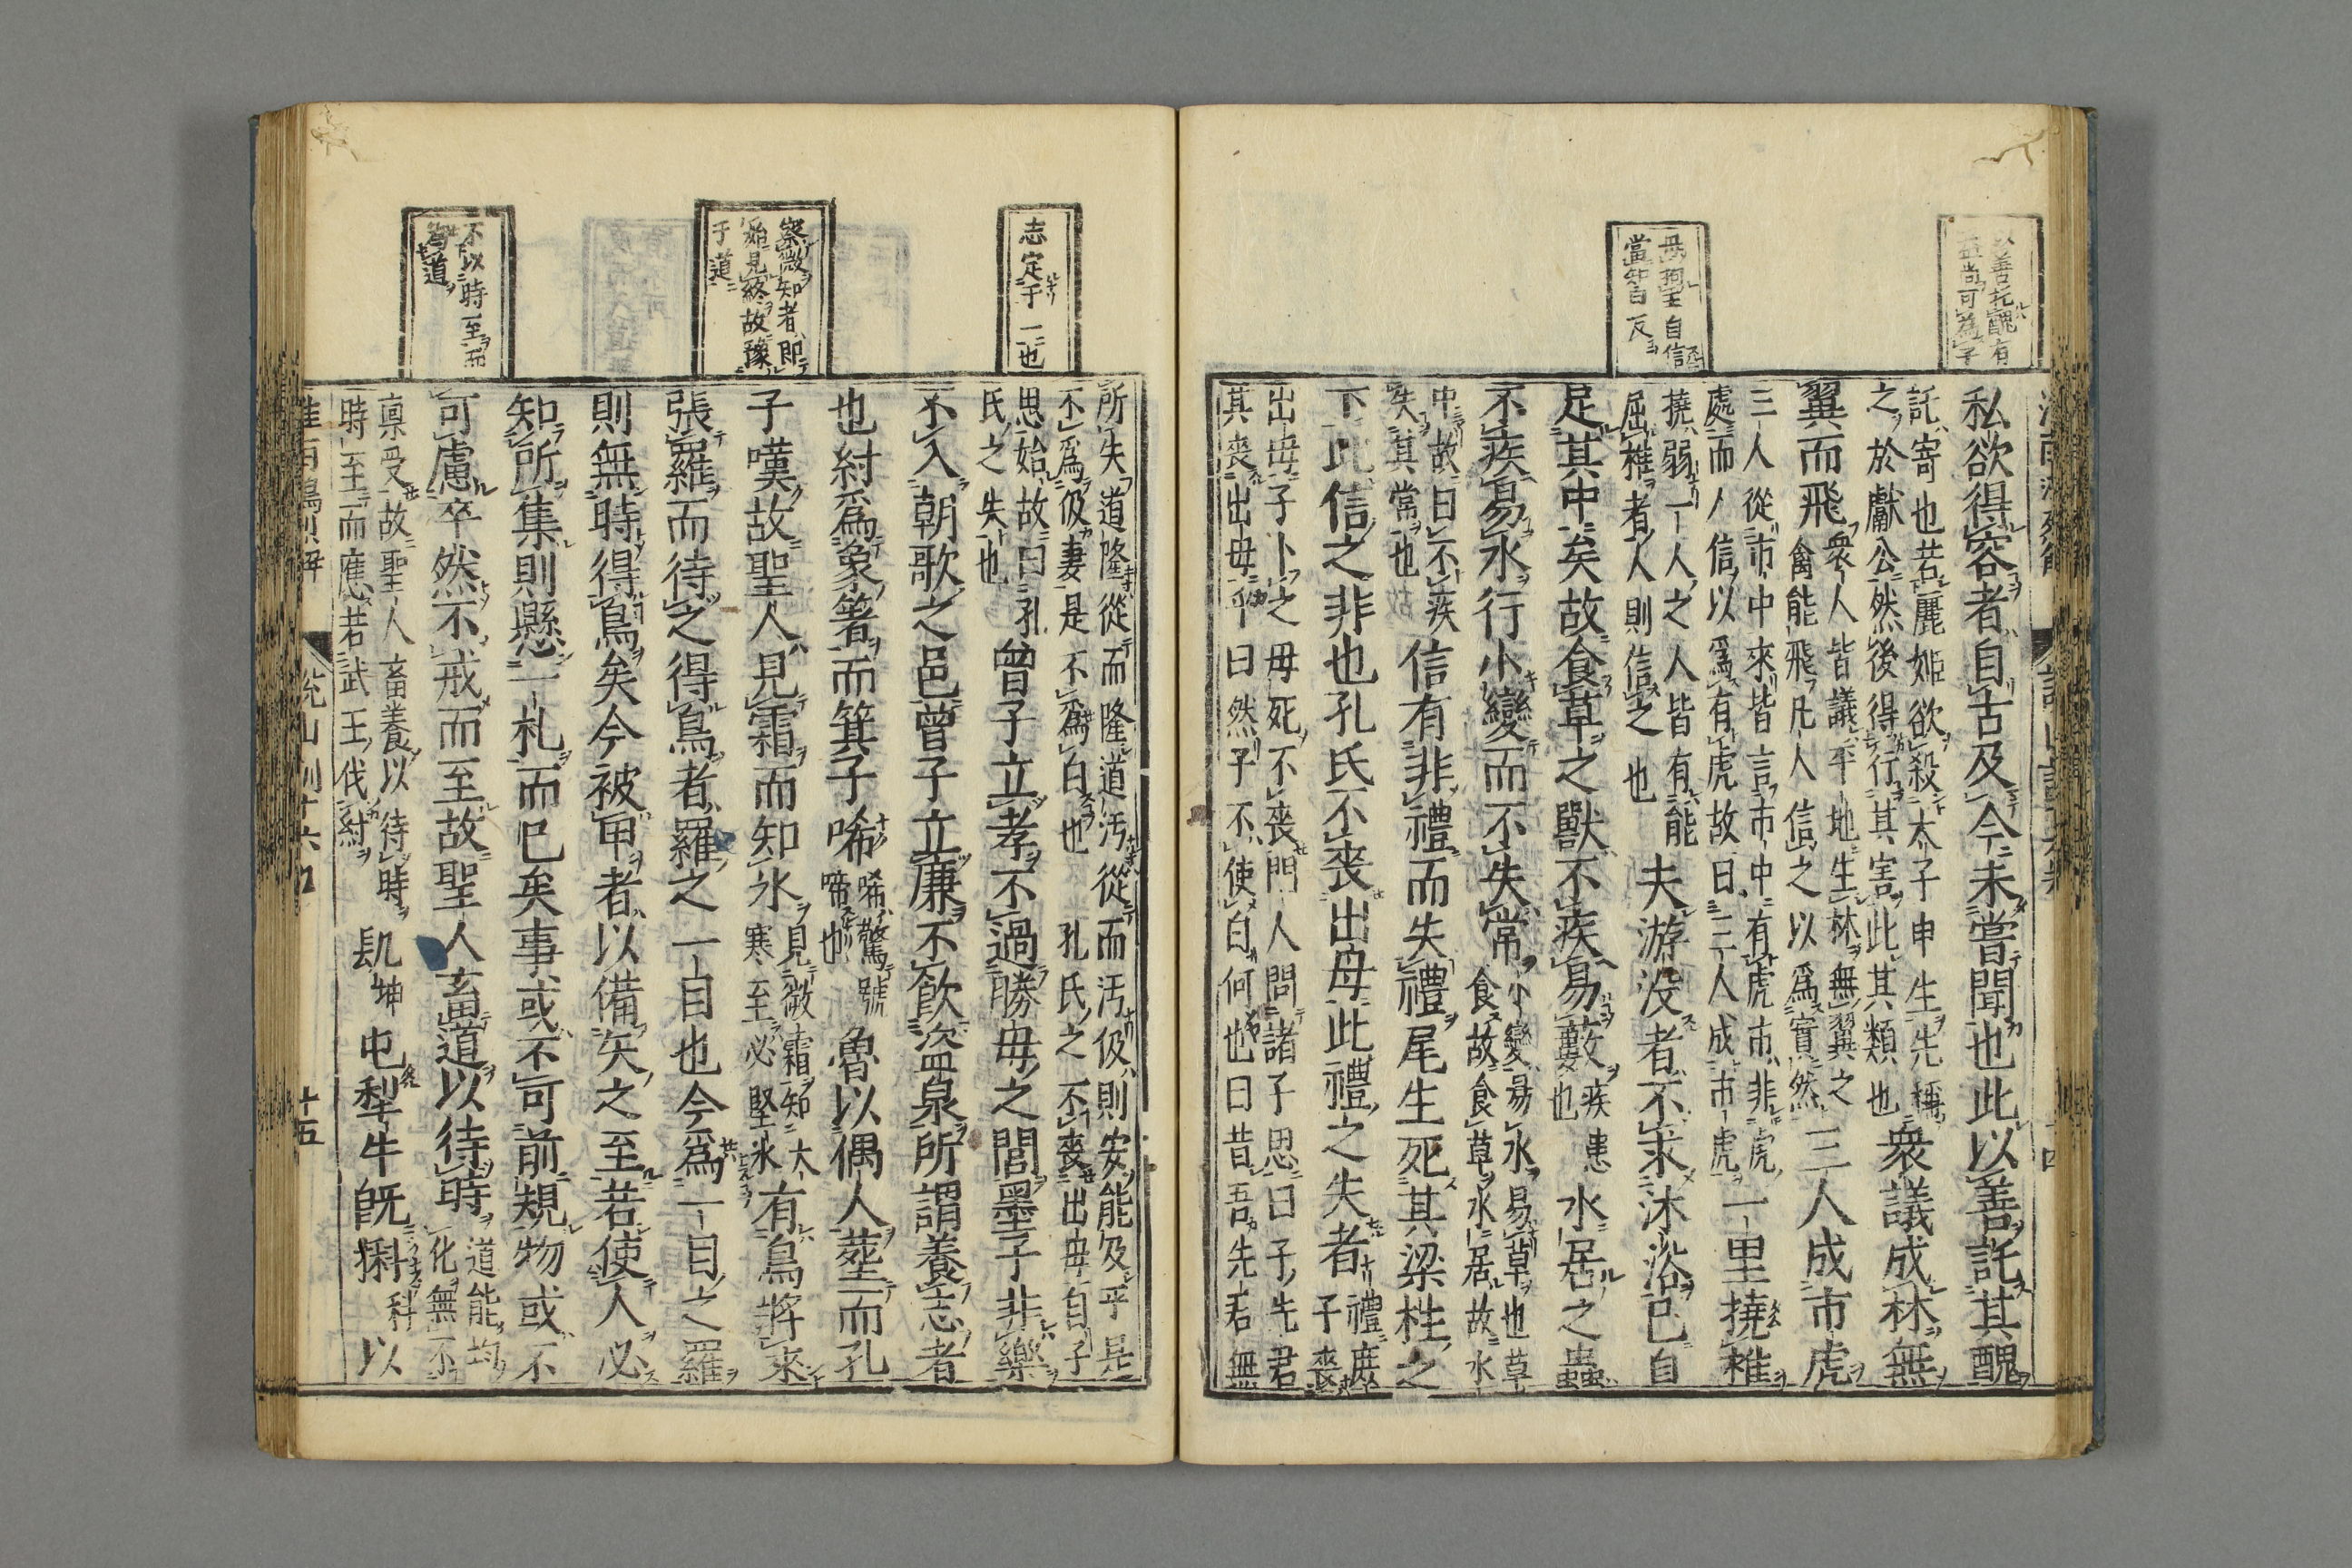 以善托醜有
益尚可為子
當知自反
私欲得容者自古及今未嘗聞也此以善託其醜
託寄也若麗姬欲殺太子申生先稱
之於獻公然後得行其害此其類也
衆議成林無
翼而飛
衆人皆議平地生林無翼之
禽能飛凡人信之以爲實然
三人成市虎
三人從市中來皆言市中有虎市非虎
處而人信以爲有虎故曰三人成市虎
一里撓椎
撓弱一人之人皆有能
屈椎者人則信之也
夫游没者不求沐浴已自
足其中矣故食草之獸不疾易藪
疾患
藪也
水居之蟲
不疾易水行小變而不失常
小變易水易草也草
食故食草水居故水
中故曰不疾
失其常也
信有非禮而失禮尾生死其梁柱之
下此信之非也孔氏不喪出母此禮之失者
禮庶
子喪
出母子卜之母死不喪門人問諸子思曰子先君
其喪出母乎曰然子不使白何也曰昔吾先君無
志定于一也
察微知者即
始見終故豫
于道
不以時至而
為道
所失道隆從而隆道汚從而汚伋則安能及乎是
不爲伋妻是不爲白也
孔氏之不喪出母自子
思始故曰孔
氏之失也
曾子立孝不過勝母之閭墨子非樂
不入朝歌之邑曾子立廉不飲盗泉所謂養志者
也紂爲象箸而箕子唏
唏驚號
啼也
魯以偶人葬而孔
子嘆故聖人見霜而知氷
見微霜知大
寒至必堅氷
有鳥將來
張羅而待之得鳥者羅之一目也今爲一目之羅
則無時得鳥矣今被甲者以備矢之至若使人必
知所集則懸一札而已矣事或不可前規物或不
可慮卒然不戒而至故聖人畜道以待時
道能均
化無不
禀受故聖人畜養以待時
時至而應若武王伐紂
髡屯犂牛既㹀
科
以
説山訓十六
十五